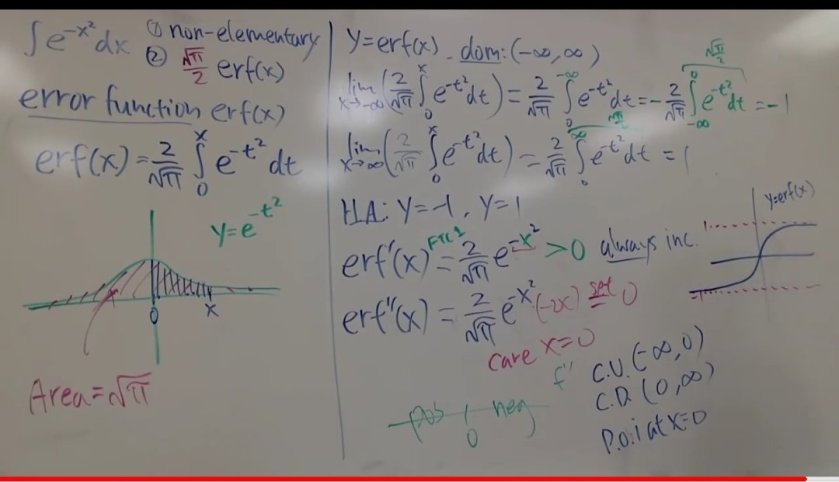 ∫e^{-x²}dx ① non-elementary
② √π/2 erf(x)
error function erf(x)
erf(x) = 2/√π ∫₀ˣ e^{-t²} dt
y=e^{-t²}
0 x
Area=√π
y=erf(x). dom: (-∞,∞)
√π/2
lim_{x→-∞} (2/√π ∫₀ˣ e^{-t²}dt) = 2/√π ∫₀^{-∞} e^{-t²}dt = -2/√π ∫_{-∞}^{0} e^{-t²}dt = -1
√π/2
lim_{x→∞} (2/√π ∫₀ˣ e^{-t²}dt) = 2/√π ∫₀^{∞} e^{-t²}dt = 1
H.A: y=-1, y=1
y=erf(x)
1
-1
FTC1
erf'(x) = 2/√π e^{-x²} >0 always inc.
erf''(x) = 2/√π e^{-x²} (-2x) set = 0
care x=0
f''
pos neg
0
C.U. (-∞,0)
C.D. (0,∞)
P.o.i at x=0